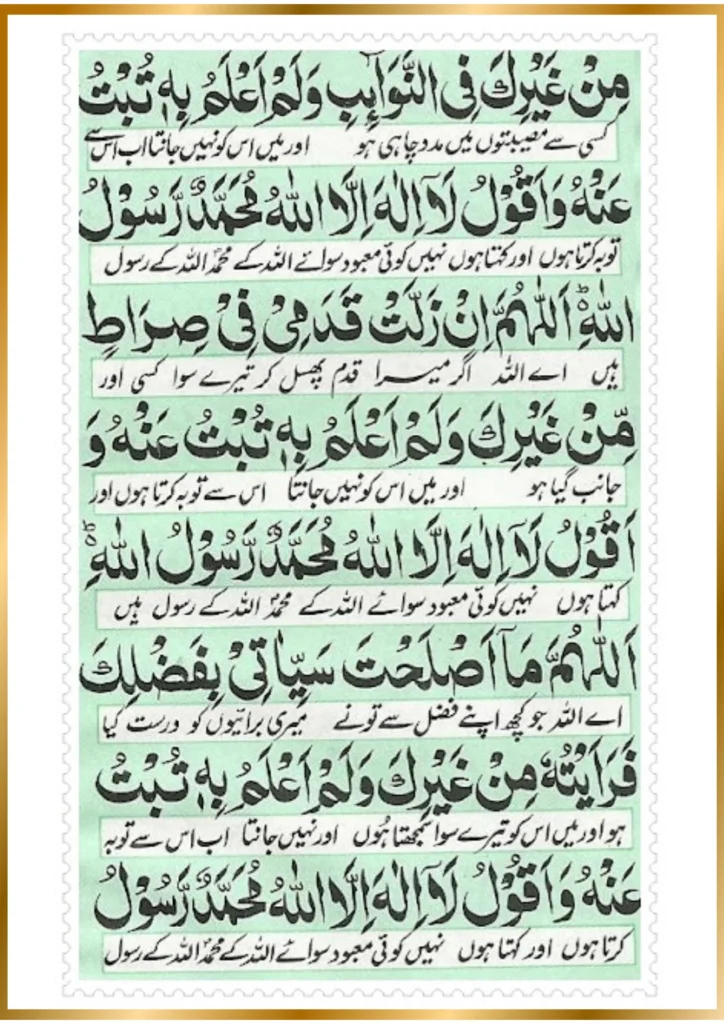 مِنْ غَيْرِكَ فِى النَّوَآئِبِ وَلَمْ اَعْلَمُ بِهٖ تُبْتُ
کسی سے مصیبتوں میں مدد چاہی ہو اور میں اس کو نہیں جانتا اب اس سے
عَنْهُ وَاَقُوْلُ لَآ اِلٰهَ اِلَّا اللهُ مُحَمَّدٌ رَّسُوْلُ
توبہ کرتا ہوں اور کہتا ہوں نہیں کوئی معبود سوائے اللہ کے محمدؐ اللہ کے رسول
اللهِؕ اَللّٰهُمَّ اِنْ زَلَّتْ قَدَمِىْ فِىْ صِرَاطٍ
ہیں اے اللہ اگر میرا قدم پھسل کر تیرے سوا کسی اور
مِّنْ غَيْرِكَ وَلَمْ اَعْلَمُ بِهٖ تُبْتُ عَنْهُ وَ
جانب گیا ہو اور میں اس کو نہیں جانتا اس سے توبہ کرتا ہوں اور
اَقُوْلُ لَآ اِلٰهَ اِلَّا اللهُ مُحَمَّدٌ رَّسُوْلُ اللهِؕ
کہتا ہوں نہیں کوئی معبود سوائے اللہ کے محمدؐ اللہ کے رسول ہیں
اَللّٰهُمَّ مَآ اَصْلَحْتَ سَيِّاٰتِىْ بِفَضْلِكَ
اے اللہ جو کچھ اپنے فضل سے تونے میری برائیوں کو درست کیا
فَرَاَيْتُهٗ مِنْ غَيْرِكَ وَلَمْ اَعْلَمُ بِهٖ تُبْتُ
ہو اور میں اس کو تیرے سوا سمجھتا ہُوں اور نہیں جانتا اب اس سے توبہ
عَنْهُ وَاَقُوْلُ لَآ اِلٰهَ اِلَّا اللهُ مُحَمَّدٌ رَّسُوْلُ
کرتا ہوں اور کہتا ہوں نہیں کوئی معبود سوائے اللہ کے محمدؐ اللہ کے رسول